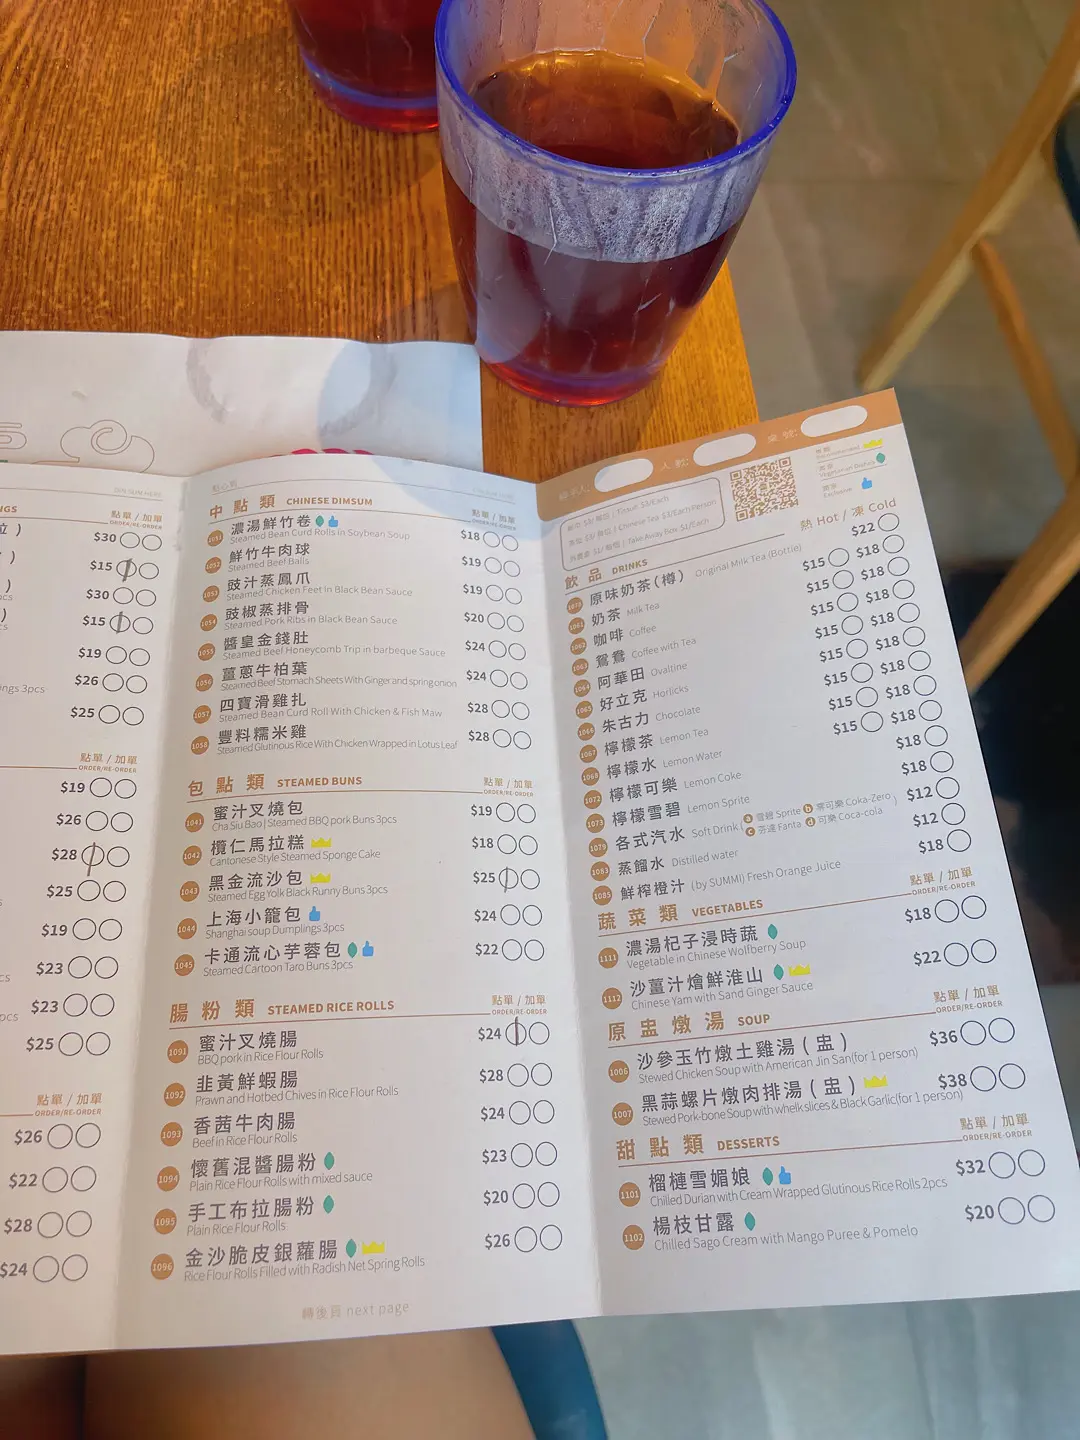 NGS
點單 / 加單
ORDER/RE-ORDER
$30
$15
$30
$15
$19
ings 3pcs
$26
$25
點單 / 加單
ORDER/RE-ORDER
$19
$26
$28
$25
$19
$23
$23
$25
點單 / 加單
ORDER/RE-ORDER
$26
$22
$28
$24
中點類 CHINESE DIMSUM
點單 / 加單
ORDER/RE-ORDER
1051 濃湯鮮竹卷 $18
Steamed Bean Curd Rolls in Soybean Soup
1052 鮮竹牛肉球 $19
Steamed Beef Balls
1053 豉汁蒸鳳爪 $19
Steamed Chicken Feet In Black Bean Sauce
1054 豉椒蒸排骨 $20
Steamed Pork Ribs in Black Bean Sauce
1055 醬皇金錢肚 $24
Steamed Beef Honeycomb Trip in barbeque Sauce
1056 薑蔥牛柏葉 $24
Steamed Beef Stomach Sheets With Ginger and spring onion
1057 四寶滑雞扎 $28
Steamed Bean Curd Roll With Chicken & Fish Maw
1058 豐料糯米雞 $28
Steamed Glutinous Rice With Chicken Wrapped in Lotus Leaf
包點類 STEAMED BUNS
點單 / 加單
ORDER/RE-ORDER
1041 蜜汁叉燒包 $19
Cha Siu Bao | Steamed BBQ pork Buns 3pcs
1042 欖仁馬拉糕 $18
Cantonese Style Steamed Sponge Cake
1043 黑金流沙包 $25
Steamed Egg Yolk Black Runny Buns 3pcs
1044 上海小籠包 $24
Shanghai soup Dumplings 3pcs
1045 卡通流心芋蓉包 $22
Steamed Cartoon Taro Buns 3pcs
腸粉類 STEAMED RICE ROLLS
點單 / 加單
ORDER/RE-ORDER
1091 蜜汁叉燒腸 $24
BBQ pork in Rice Flour Rolls
1092 韭黃鮮蝦腸 $28
Prawn and Hotbed Chives in Rice Flour Rolls
1093 香茜牛肉腸 $24
Beef in Rice Flour Rolls
1094 懷舊混醬腸粉 $23
Plain Rice Flour Rolls with mixed sauce
1095 手工布拉腸粉 $20
Plain Rice Flour Rolls
1096 金沙脆皮銀蘿腸 $26
Rice Flour Rolls Filled with Radish Net Spring Rolls
轉後頁 next page
人數:
Tissue $3/Each
Chinese Tea $3/Each Person
Take Away Box $1/Each
Vegetarian Dishes
Exclusive
飲品 DRINKS
熱 Hot / 凍 Cold
原味奶茶(樽) Original Milk Tea (Bottle) $22
1061 奶茶 Milk Tea $15 $18
1062 咖啡 Coffee $15 $18
1063 鴛鴦 Coffee with Tea $15 $18
1064 阿華田 Ovaltine $15 $18
1065 好立克 Horlicks $15 $18
1066 朱古力 Chocolate $15 $18
1067 檸檬茶 Lemon Tea $15 $18
1068 檸檬水 Lemon Water $15 $18
1072 檸檬可樂 Lemon Coke $18
1073 檸檬雪碧 Lemon Sprite $18
1079 各式汽水 Soft Drink ( a 雪碧 Sprite b 零可樂 Coka-Zero c 芬達 Fanta d 可樂 Coca-cola ) $12
1083 蒸餾水 Distilled water $12
1085 鮮榨橙汁 (by SUMMI) Fresh Orange Juice $18
蔬菜類 VEGETABLES
點單 / 加單
ORDER/RE-ORDER
1111 濃湯杞子浸時蔬 $18
Vegetable in Chinese Wolfberry Soup
1112 沙薑汁燴鮮淮山 $22
Chinese Yam with Sand Ginger Sauce
原盅燉湯 SOUP
點單 / 加單
ORDER/RE-ORDER
1006 沙參玉竹燉土雞湯(盅) $36
Stewed Chicken Soup with American Jin San(for 1 person)
1007 黑蒜螺片燉肉排湯(盅) $38
Stewed Pork-bone Soup with whelk slices & Black Garlic(for 1 person)
甜點類 DESSERTS
點單 / 加單
ORDER/RE-ORDER
1101 榴槤雪媚娘 $32
Chilled Durian with Cream Wrapped Glutinous Rice Rolls 2pcs
1102 楊枝甘露 $20
Chilled Sago Cream with Mango Puree & Pomelo